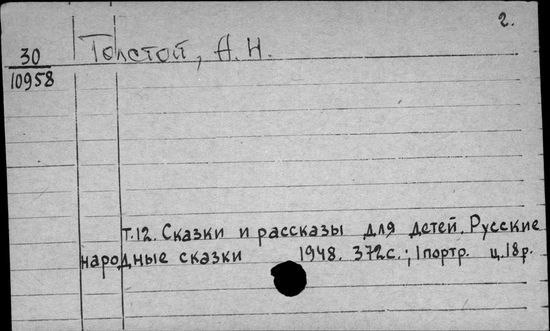 2.
30 Толстой, А.Н.
10958
т.12. Сказки и рассказы для детей. Русские
народные сказки 1948. 372с.; 1портр. ц.18р.